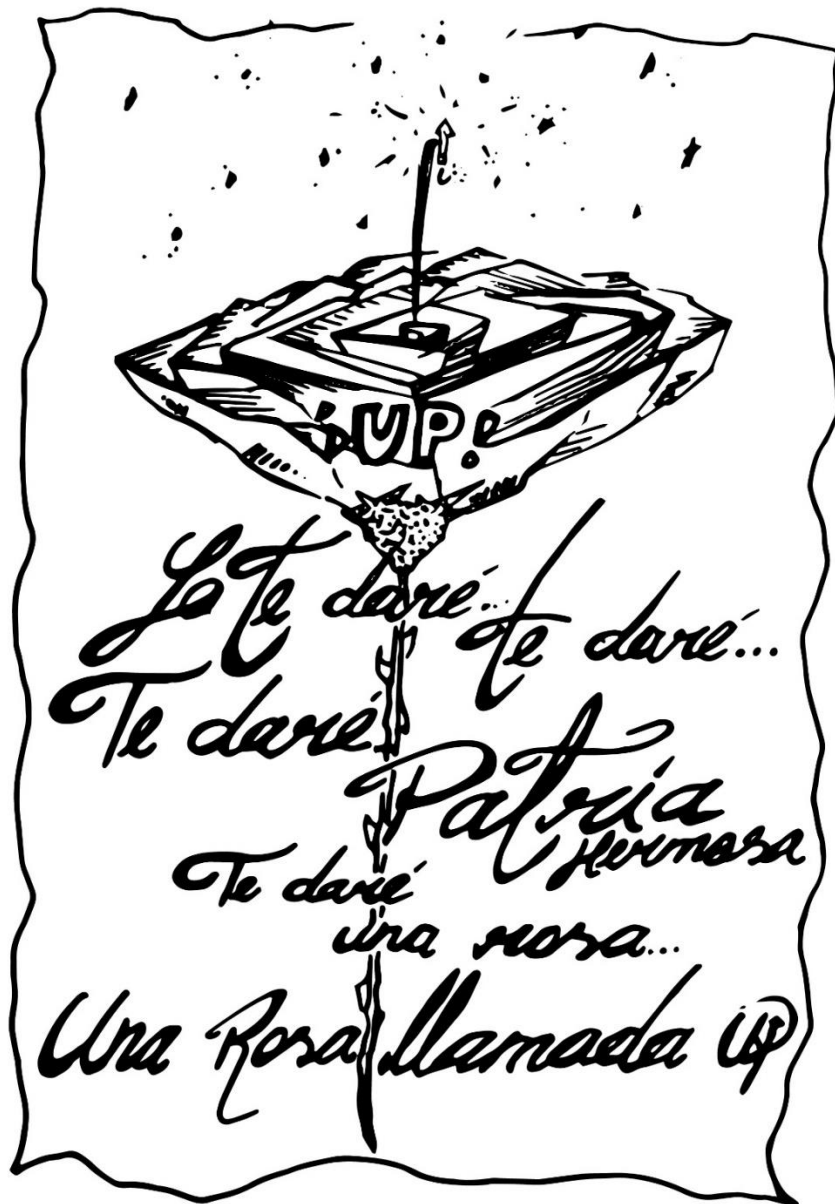 ¡UP!
Yo te daré.. te daré...
Te daré
Patria
Hermosa
Te daré
una rosa...
Una Rosa llamada UP